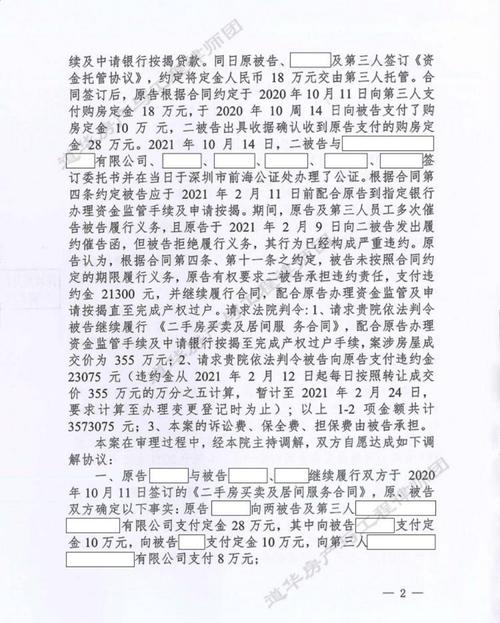 续及申请银行按揭贷款。同日原被告、及第三人签订《资
金托管协议》，约定将定金人民币 18 万元交由第三人托管。合
同签订后，原告根据合同约定于 2020 年 10 月 11 日向第三人支
付购房定金 18 万元,于 2020 年 10 周 14 日向被告支付了购
房定金 10 万 元，二被告出具收据确认收到原告支付的购房定
金 28 万元。2021 年 10 月 14 日，二被告与
有限公司、、、、、签
订委托书并在当日于深圳市前海公证处办理了公证。根据合同第
四条约定被告应于 2021 年 2 月 11 日前配合原告到指定银行
办理资金监管手续及申请按揭。期间，原告及第三人员工多次催
告被告履行义务，且原告于 2021 年 2 月 9 日向二被告发出履
约催告函，但被告拒绝履行义务，其行为已经构成严重违约。原
告认为，根据合同第四条、第十一条之约定，被告未按照合同约
定的期限履行义务，原告有权要求二被告承担违约责任，支付违
约金 21300 元，并继续履行合同，配合原告办理资金监管及申
请按揭直至完成产权过户。请求法院判令:1、请求贵院依法判令
被告继续履行 《二手房买卖及居间服 务合同》，配合原告办理
资金监管手续及申请银行按揭至完成产权过户手续，案涉房屋成
交价为 355 万元;2、请求贵院依法判令被告向原告支付违约金
23075 元（违约金从 2021 年 2 月 12 日起每日按照转让成交
价 355 万元的万分之五计算， 暂计至 2021 年 2 月 24 日，
要求计算至办理变更登记时为止）；以上 1-2 项金额共计
3573075 元；3、本案的诉讼费、保全费、担保费由被告承担。
本案在审理过程中，经本院主持调解，双方自愿达成如下
调解协议：
一、原告与被告、继续履行双方于 2020
年 10 月 11 日签订的《二手房买卖及居间服务合同》，原、被告
双方确定以下事实：原告向两被告及第三人
有限公司支付定金 28 万元，其中向被告支付定
金 10 万元，向被告支付定金 10 万元，向第三人
有限公司支付 8 万元；
— 2 —